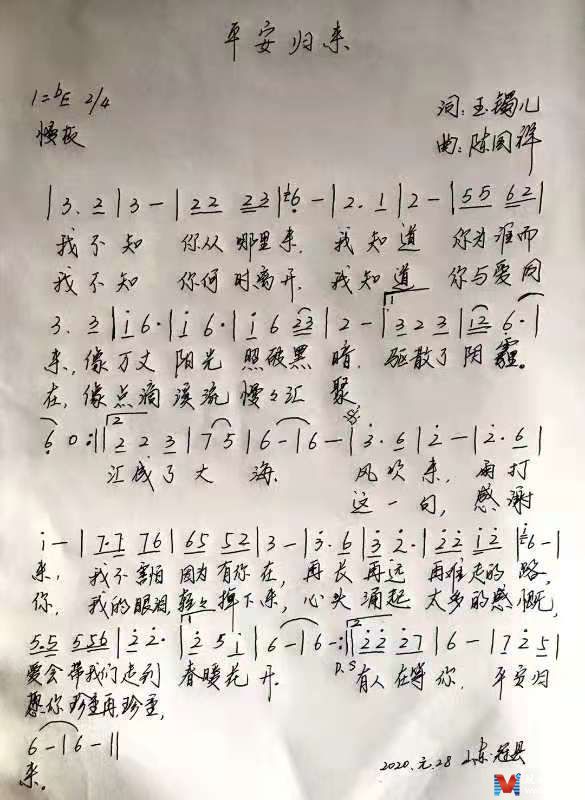 平安归来
1=bE 2/4
词:玉镯儿
慢板
曲:陈国祥
|3. 2|3 -|22 23|6 -|2. 1|2 -|55 62|
我不知 你从哪里来, 我知道 你为谁而
我不知 你何时离开, 我知道 你与爱同
3. 3|i 6·|i 6·|i 6 23|2 -|3 2 3|12 6·|
来,像万丈 阳光 照破黑 暗, 驱散了 阴霾。
在,像点滴 溪流 慢々汇 聚
6 0:||2 2 3|7 5|6 -|6 -|3. 6|2 -|2. 6|
汇成了 大 海. 风吹来, 雨打
这一句, 感谢
i -|7.7 76|65 52|3 -|3. 6|3 2.|22 12|6 -|
来, 我不害怕 因为有你在, 再长再远 再难走的 路,
你, 我的眼泪 轻々掉下来, 心头 涌起 太多的感慨,
5.5 556|2 2.|2 5 i|6 -|6 -:||22 27|6 -|7 2 5|
D.S
爱会带我们走到 春暖花 开. 有人在等 你, 平安归
愿你珍重再珍重,
6 -|6 -||
来。
2020.元.28 山东.冠县